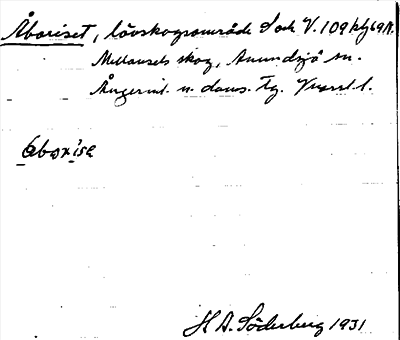 Åboriset, lövskogsområde S och V. 109
Mellansels skog, Anundsjö sn.
Ångerml. n. doms.
åborisə
H A. Söderberg 1931